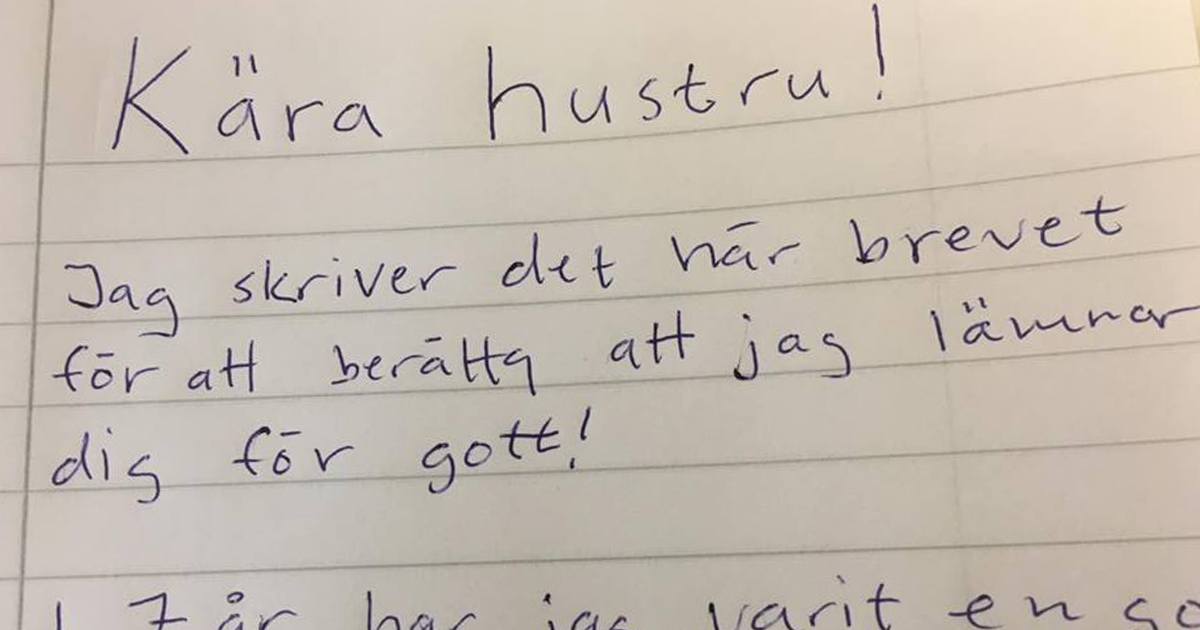 Kära hustru!
Jag skriver det här brevet
för att berätta att jag lämnar
dig för gott!
I 7 år har jag varit en